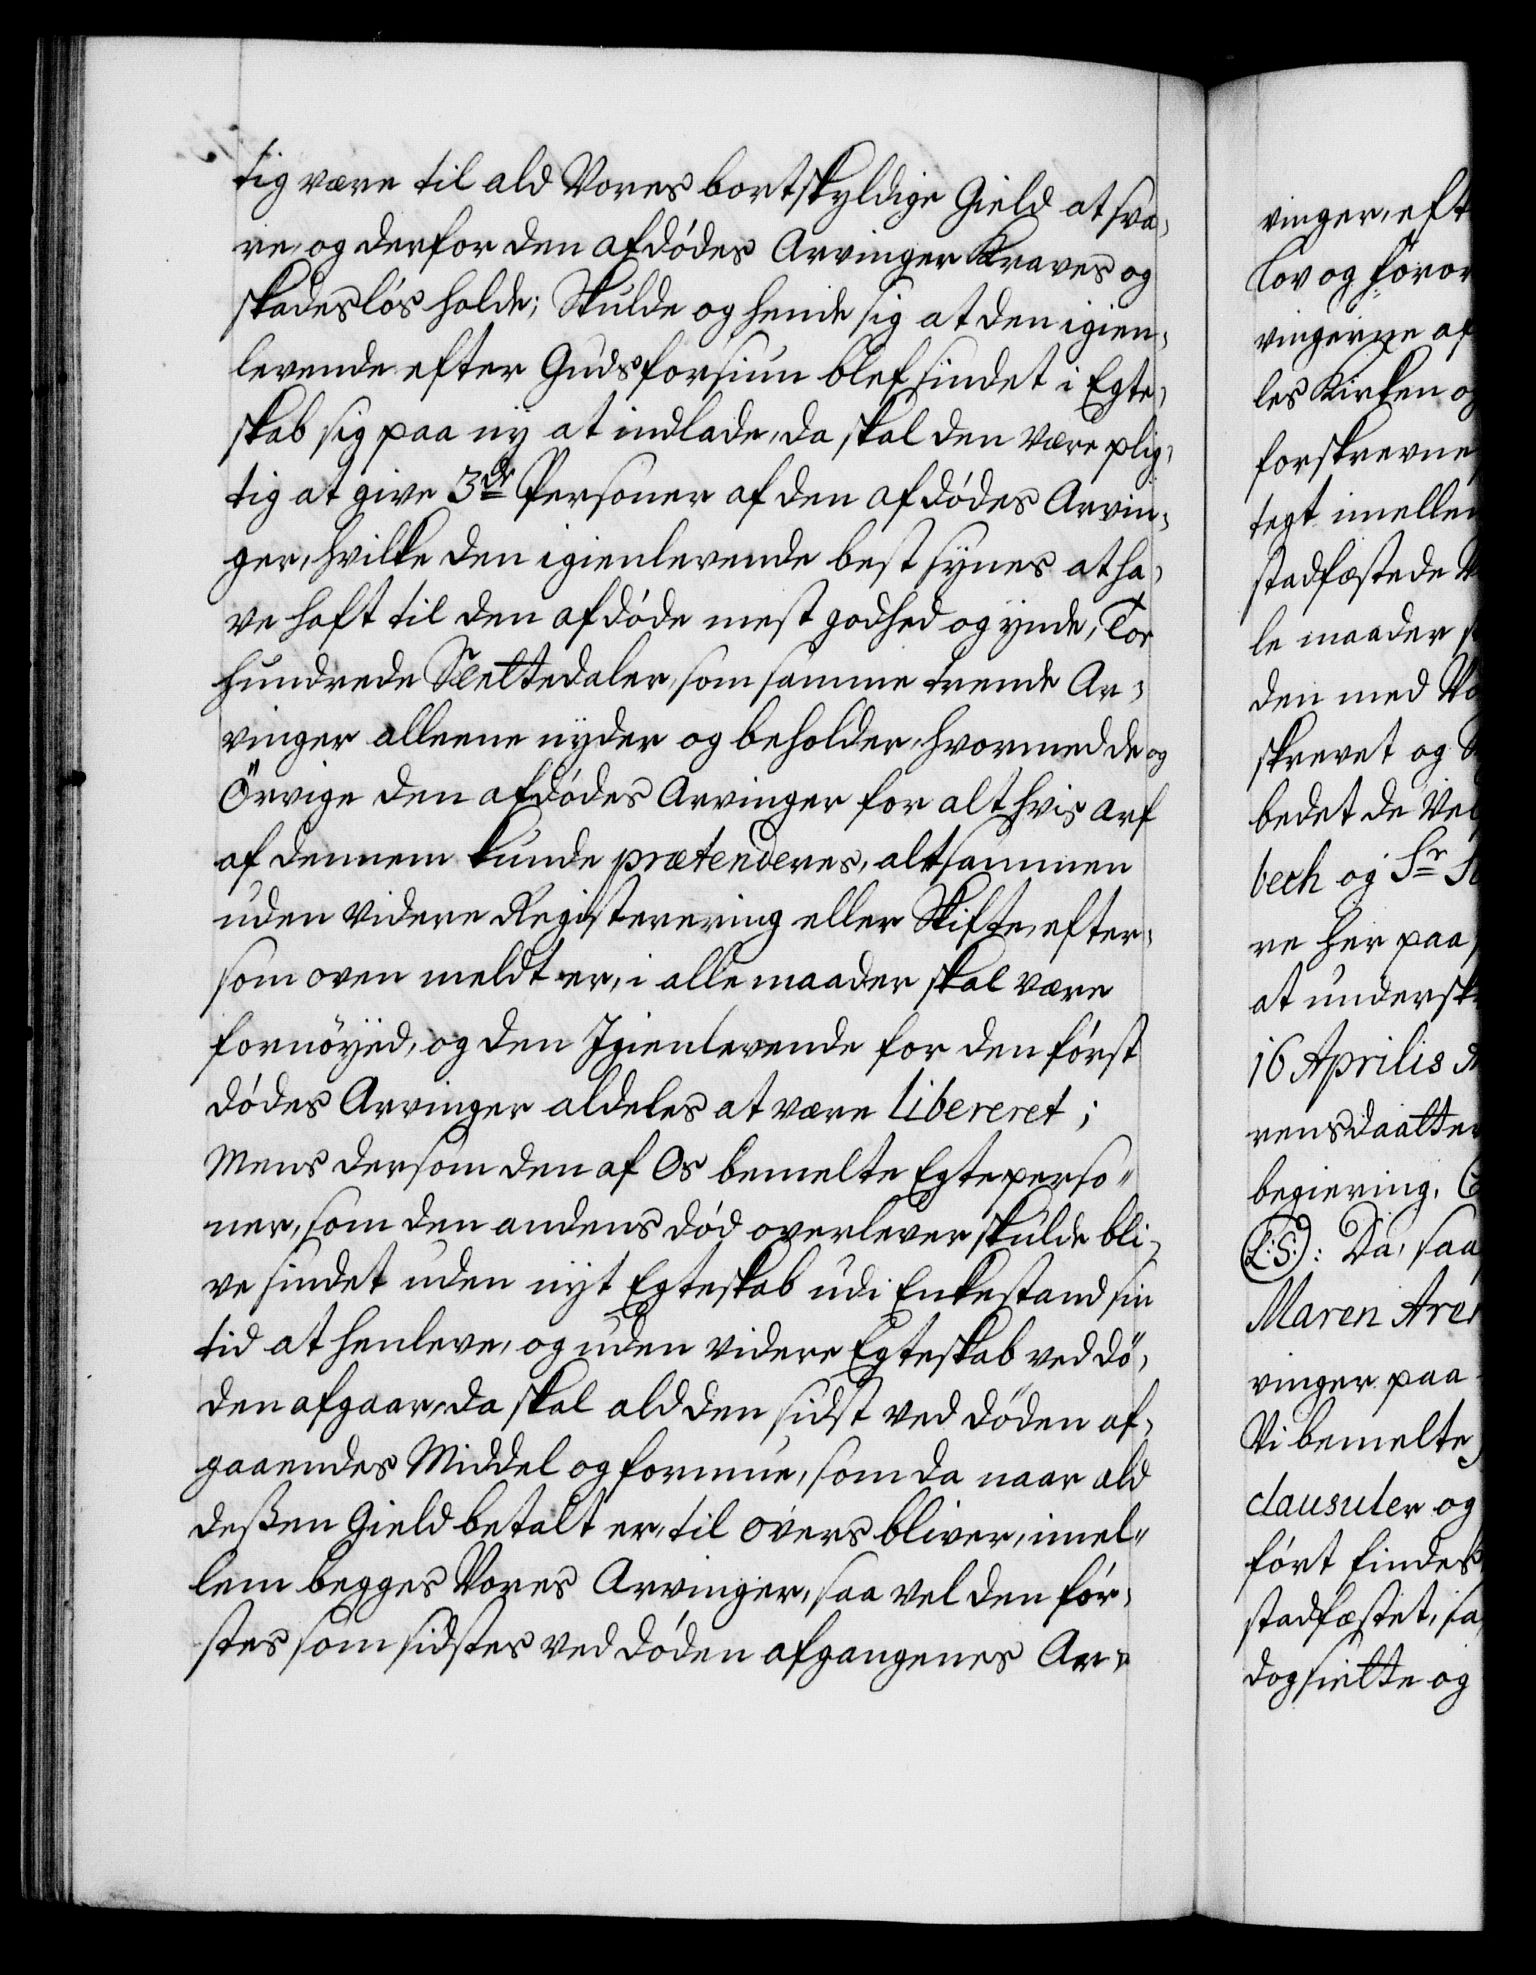 tig være til ald Vores bortskyldige Gield at sva¬
re, og derfor den afdødes Arvinger Kraves og
skadesløs holde; Skulde og hende sig at den igien¬
levende efter Guds forsiun blef sindet i Egte¬
skab sig paa ny at indlade, da skal den være plig¬
tig at give 3de Personer af den afdødes Arvin¬
ger, hvilke den igienlevende best synes at ha¬
ve haft til den afdøde mest godhed og ynde, Tor
hundrede Slettedaler, som samme trende Ar¬
vinger alleene nyder og beholder, hvormed de og
Örvige den afdødes Arvinger for alt hvis arf
af dennem kunde prætenderes, altsammen
uden videre Registerering eller Skifte, efter¬
som oven meldt er, i alle maader skal være
fornöyed, og den Igienlevende for den først
dødes Arvinger aldeles at være libereret;
Mens dersom den af Os bemelte Egteperso¬
ner, som den andens død overlever skulde bli¬
ve sindet uden nyt Egteskab udi Enkestand sin
tid at henleve, og uden videre Egteskab ved dö¬
den afgaar, da skal ald den sidst ved døden af¬
gaaendes Middel og formue, som da naar ald
deßen Gield betalt er, til overs bliver, imel¬
lem begges Vores Arvinger, saa vel den før¬
stes som sidstes ved døden afgangenes Ar¬
vinger, eft
Lov og foror
vingerne af
les Kirken og
forskrevne
tegt imellem
stadfæstede V
le maader s
den med Vo
skrevet og
bedet de Vel
bech og Sr
re her paa
at underskr
16 Aprilis A
rensdaatter
begiering.
(L:S:): Da, saa
Maren Are
vinger paa
Vi bemelte
clausuler og
ført findes
stadfæstet, sa
dog sielte og